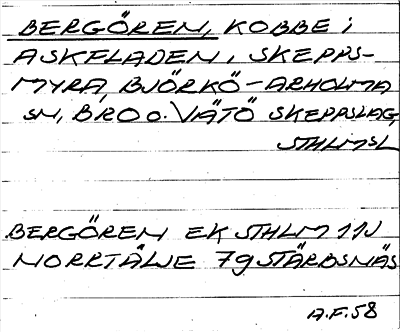 BERGÖREN, KOBBE i
ASKFLADEN, SKEPPS-
MYRA, BJÖRKÖ-ARHOLMA
SN, BRO o. VÄTÖ SKEPPSLAG,
STHLMSL
BERGÖREN EK STHLM 11J
NORRTÄLJE 79 STÄRBSNÄS
A.F. 58